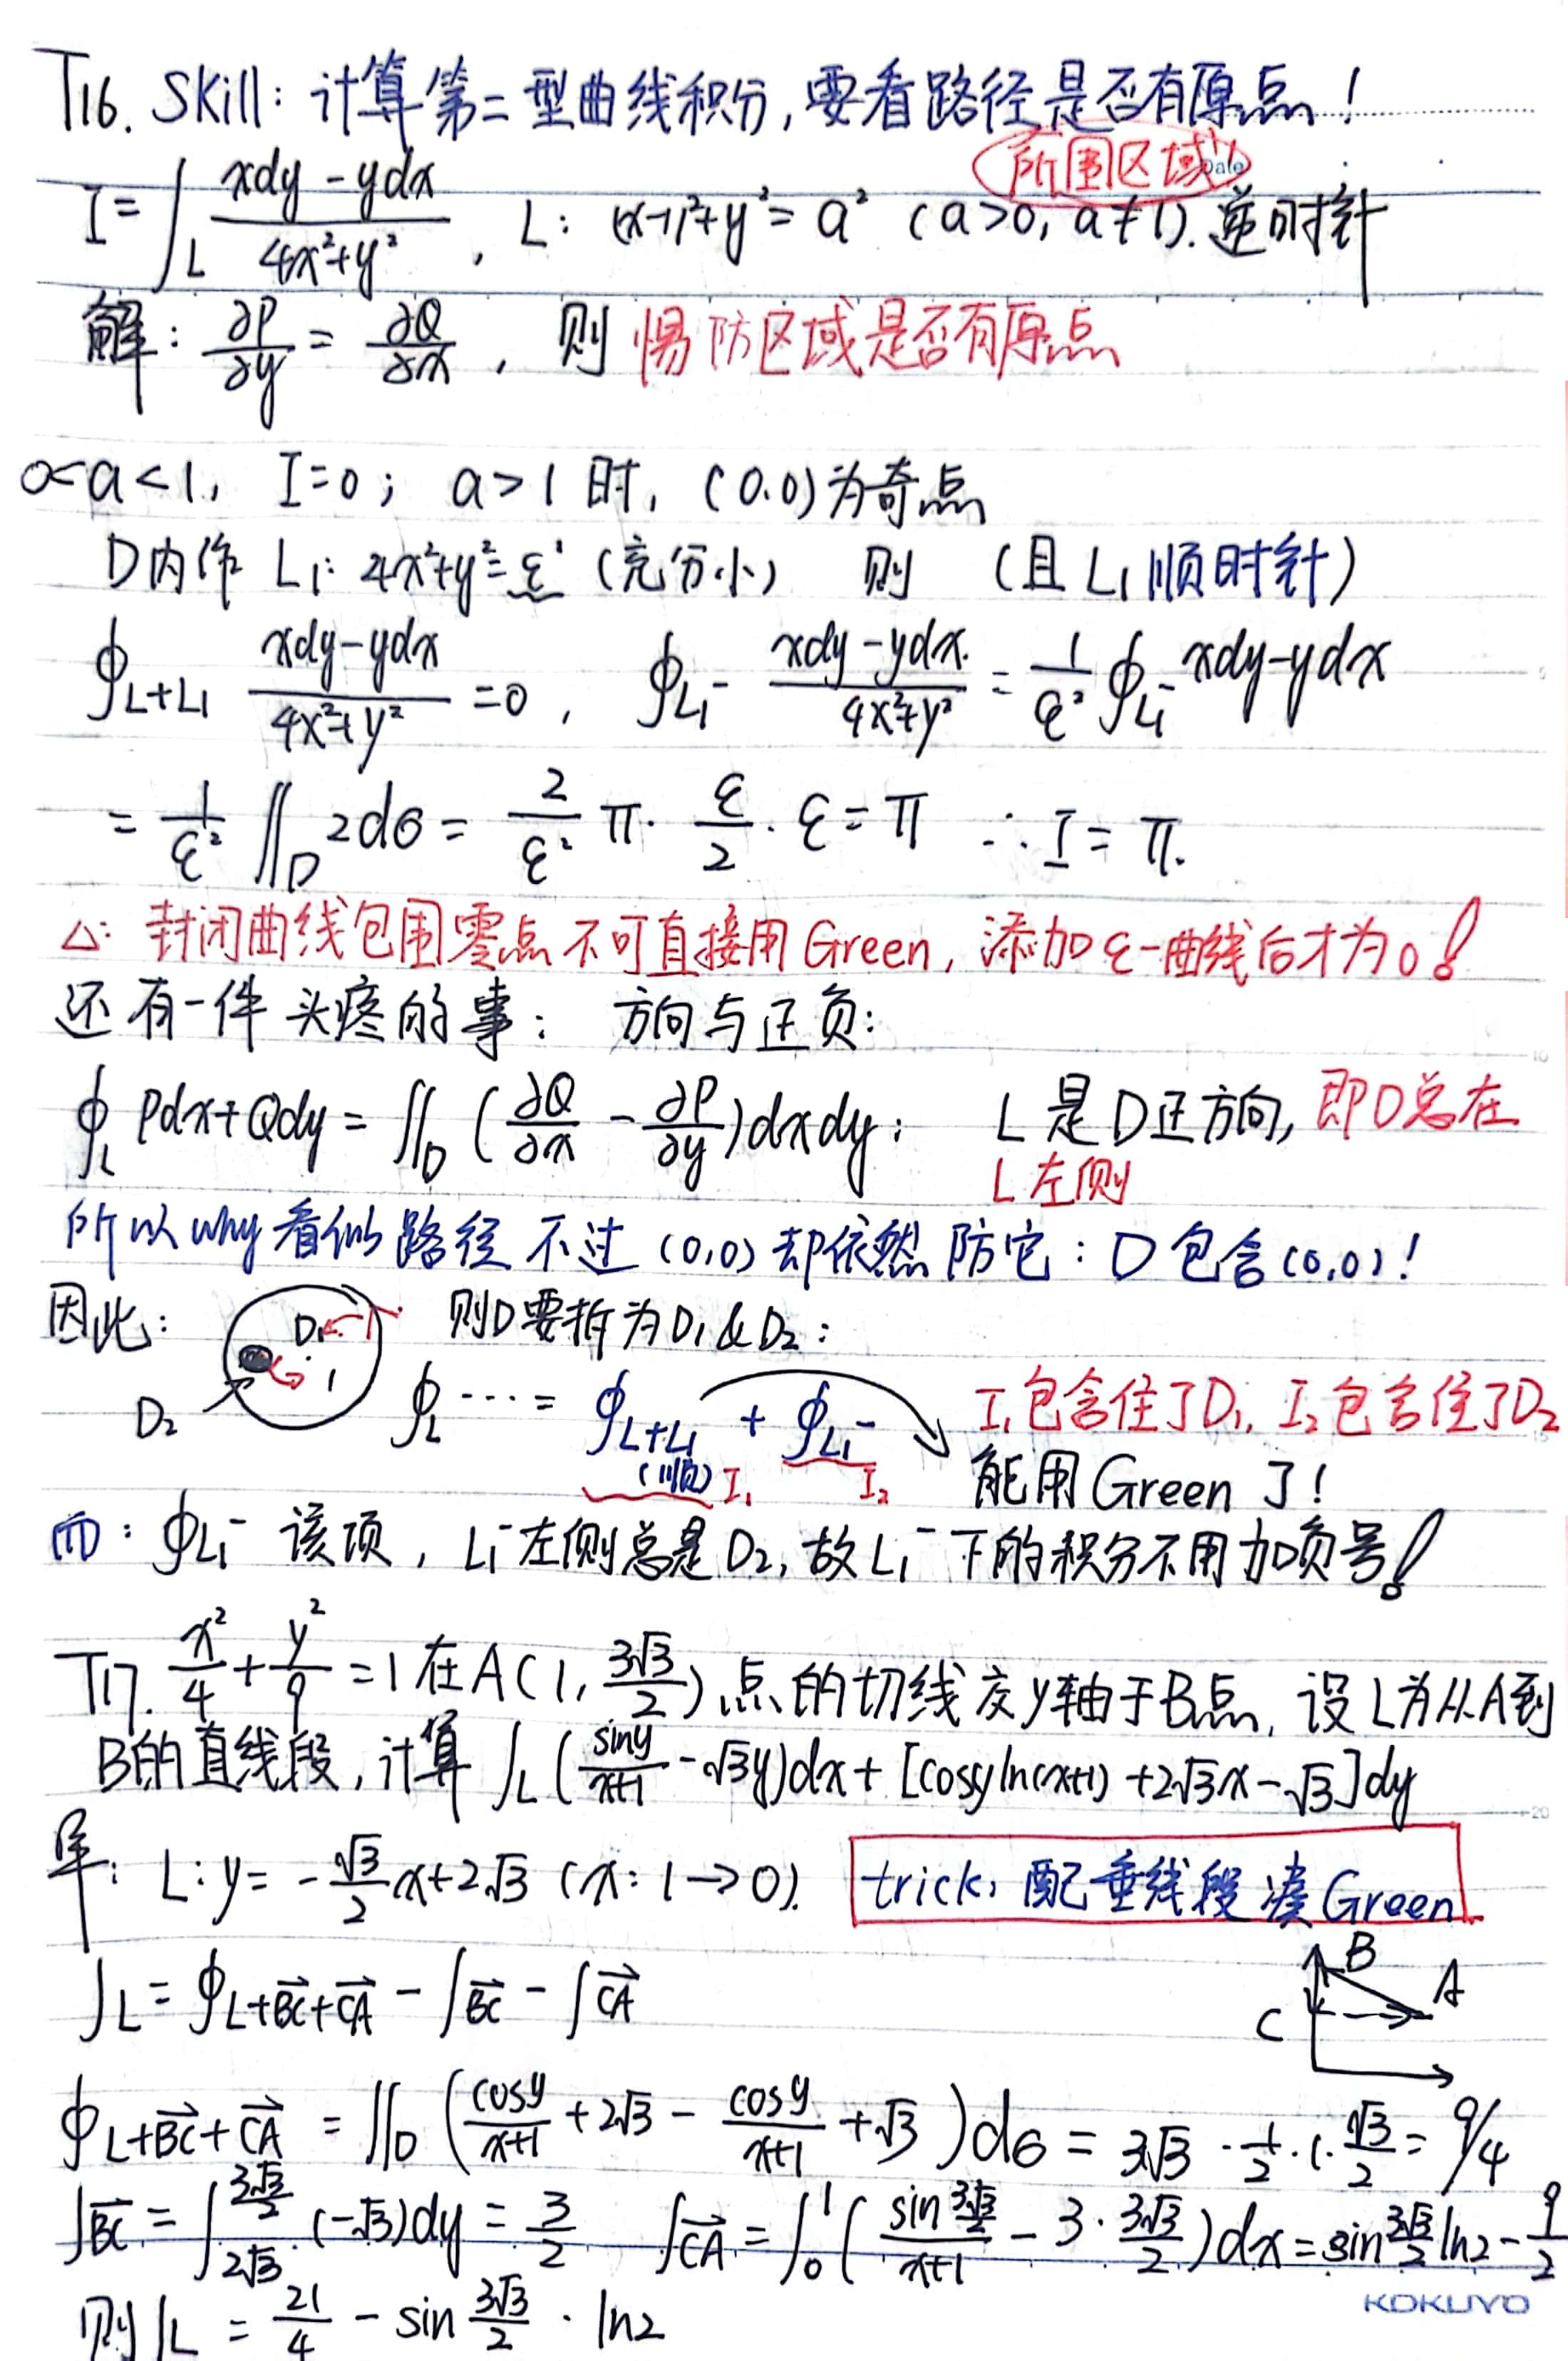 T16. Skill: 计算第二型曲线积分,要看路径是否有原点!
所围区域
I = ∫_L (xdy - ydx)/(4x²+y²), L: (x-1)²+y² = a² (a>0, a≠1). 逆时针
解: ∂P/∂y = ∂Q/∂x, 则 惕防区域是否有原点
0<a<1, I=0; a>1时, (0,0)为奇点
D内作 L₁: 4x²+y²=ε² (充分小) 则 (且L₁顺时针)
∮_{L+L₁} (xdy-ydx)/(4x²+y²) = 0, ∮_{L₁⁻} (xdy-ydx)/(4x²+y²) = 1/ε² ∮_{L₁⁻} xdy-ydx
= 1/ε² ∬_D 2dσ = 2/ε² π· ε/2 · ε = π ∴ I = π.
△: 封闭曲线包围零点不可直接用Green, 添加ε-曲线后才为0!
还有一件头疼的事: 方向与正负:
∮_L Pdx+Qdy = ∬_D (∂Q/∂x - ∂P/∂y)dxdy: L是D正方向, 即D总在
L左侧
所以why看似路径不过(0,0)却依然防它: D包含(0,0)!
因此: D₁ 1 则D要拆为D₁&D₂:
D₂ ∮_L ···· = ∮_{L+L₁} + ∮_{L₁⁻} I₁包含住了D₁, I₂包含住了D₂
(顺) I₁ I₂ 能用Green了!
而: ∮_{L₁⁻} 该项, L₁⁻左侧总是D₂, 故L₁⁻下的积分不用加负号!
T17. x²/4 + y²/9 = 1在A(1, 3√3/2)点的切线交y轴于B点, 设L为从A到
B的直线段, 计算 ∫_L (siny/(x+1) - √3y)dx + [cosyln(x+1) + 2√3x - √3]dy
解: L: y = -√3/2 x + 2√3 (x: 1→0). trick: 配垂线段凑Green
∫_L = ∮_{L+BC→+CA→} - ∫_{BC→} - ∫_{CA→} B A C
∮_{L+BC→+CA→} = ∬_D (cosy/(x+1) + 2√3 - cosy/(x+1) + √3)dσ = 3√3 · 1/2 · 1 · √3/2 = 9/4
∫_{BC→} = ∫_{2√3}^{3√3/2} (-√3)dy = 3/2 ∫_{CA→} = ∫_0^1 (sin 3√3/2 /(x+1) - 3· 3√3/2)dx = sin 3√3/2 ln2 - 9/2
则∫_L = 21/4 - sin 3√3/2 · ln2
KOKUYO